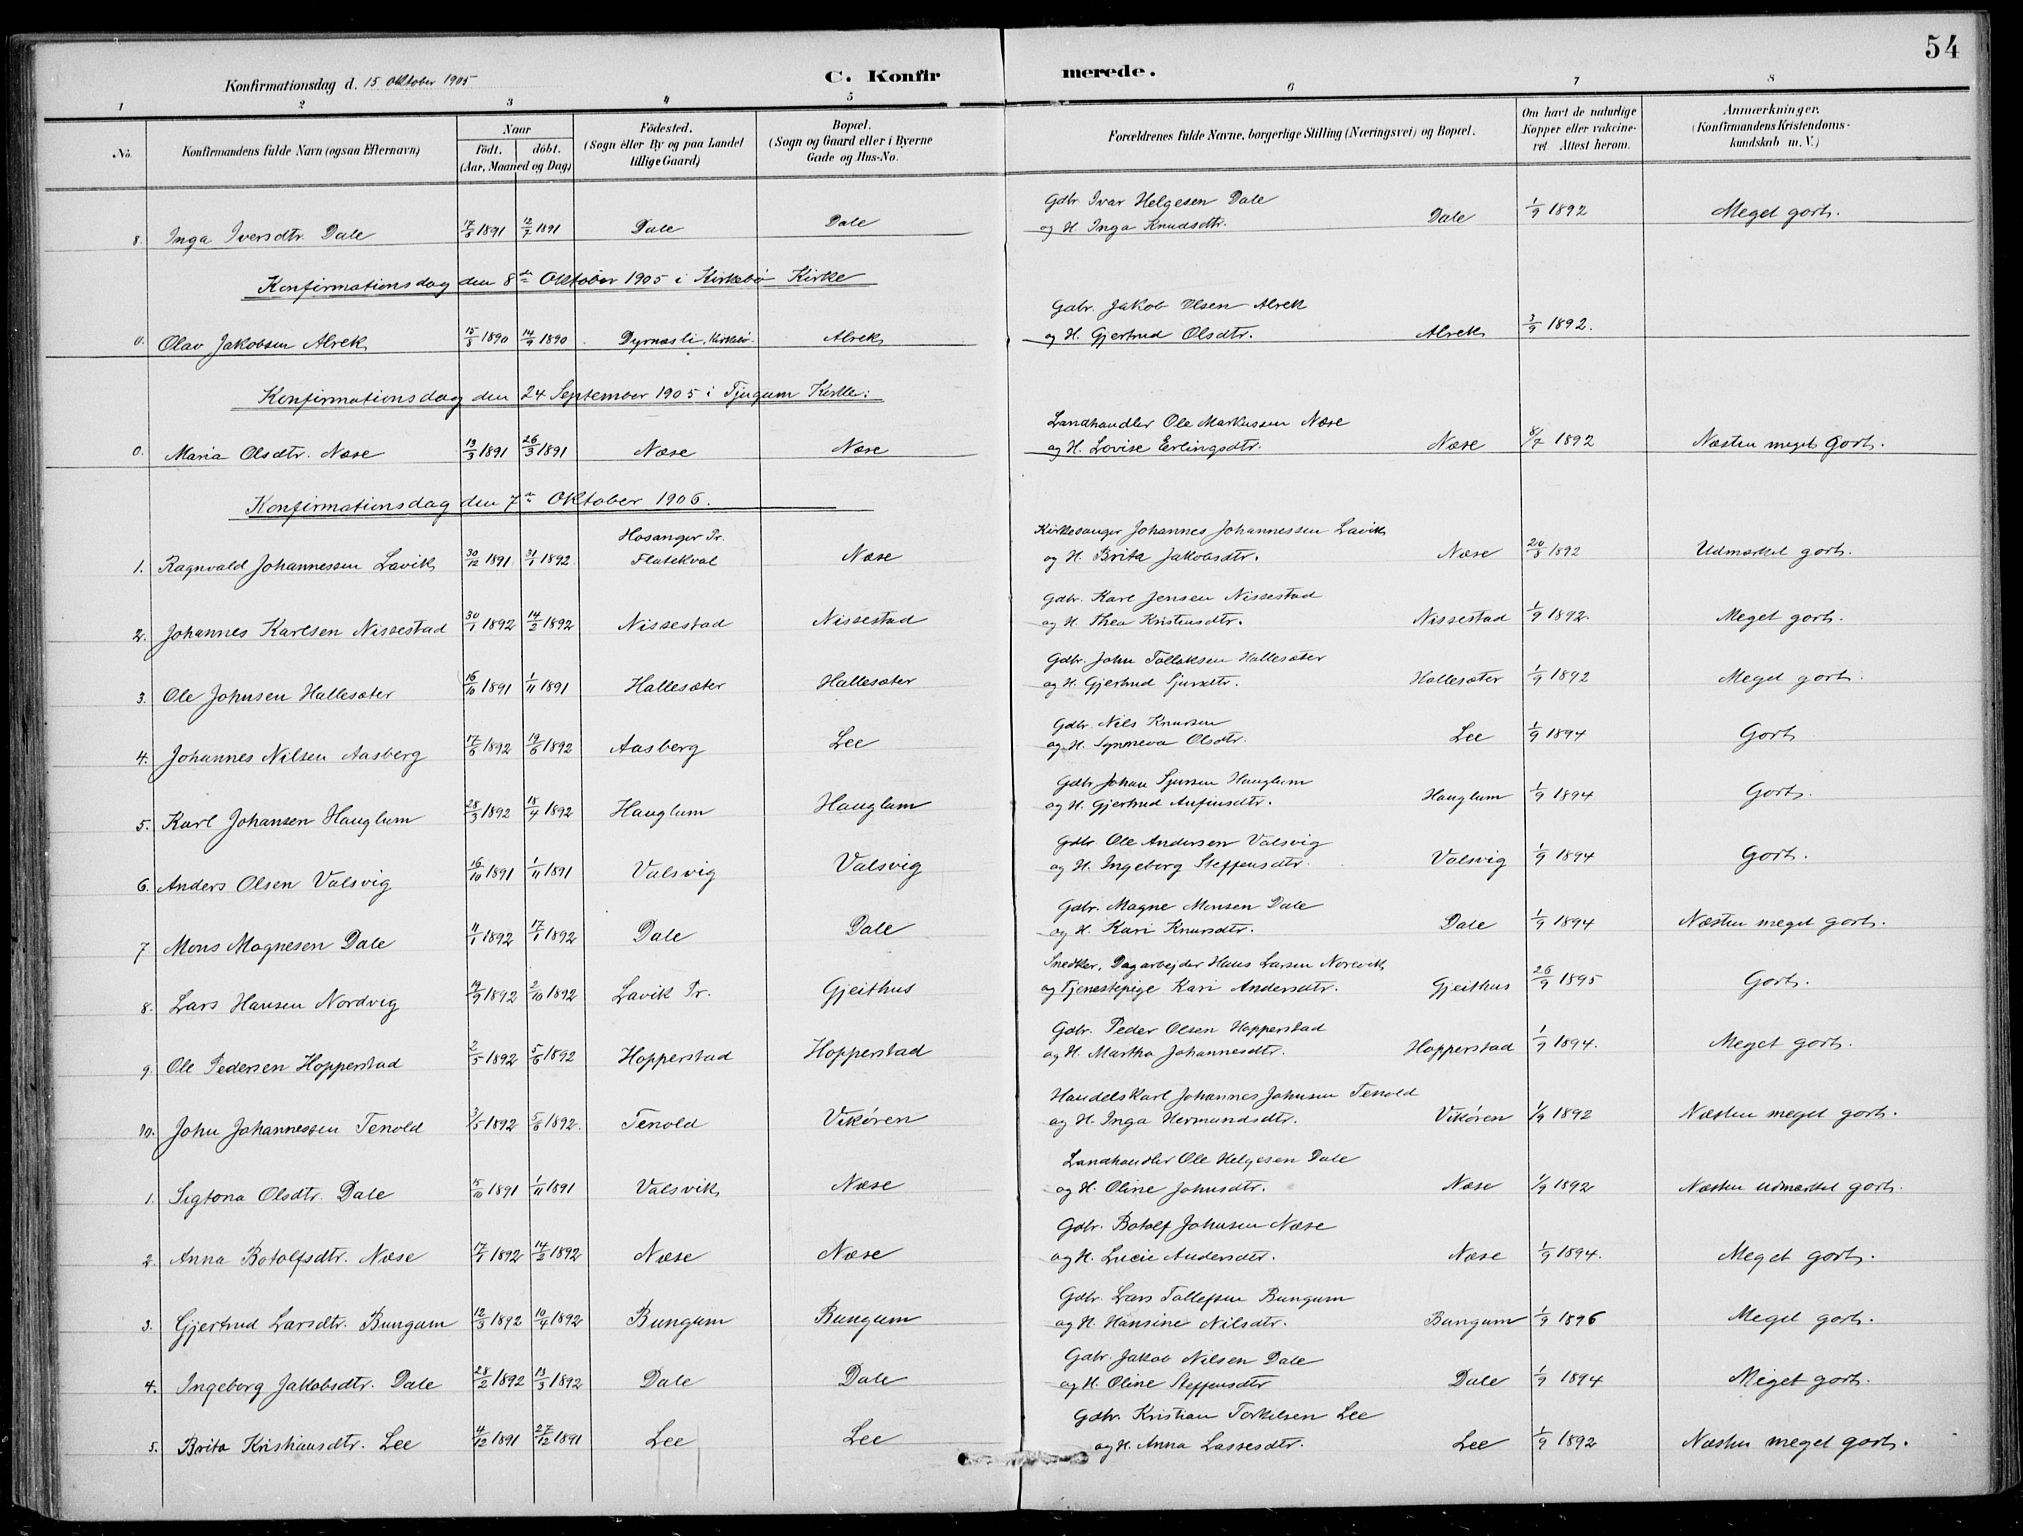 54
Konfirmationsdag d. 15 Oktober 1905
C. Konfirmerede.
1 2 3 4 5 6 7 8
No. Konfirmandens fulde Navn (ogsaa Efternavn) Naar födt. döbt. (Aar, Maaned og Dag) Födested. (Sogn eller By og paa Landet tillige Gaard) Bopæl. (Sogn og Gaard eller i Byerne Gade og Hus-No. Forældrenes fulde Navne, borgerlige Stilling (Næringsvei) og Bopæl. Om havt de naturlige Kopper eller vakcineret. Attest herom. Anmærkninger. (Konfirmandens Kristendomskundskab m. V.)
Gdbr. Ivar Helgesen Dale
8. Inga Iversdtr. Dale 17/6 1891 12/7 1891 Dale Dale og H. Inga Knudsdtr. Dale 1/9 1892 Meget godt.
Konfirmationsdag den 8de Oktober 1905 i Kirkebø Kirke
Gdbr. Jakob Olsen Alrek
0. Olav Jakobsen Alrek 15/8 1890 14/9 1890 Dyrnesli, Kirkebø. Alrek og H. Gjertrud Olsdtr. Alrek 3/9 1892.
Konfirmationsdag den 24 September 1905 i Tjugum Kirke:
Landhandler Ole Markussen Næse
0. Maria Olsdtr. Næse 13/3 1891 26/3 1891 Næse Næse og H. Lovise Erlingsdtr. Næse 8/7 1892 Næsten meget godt.
Konfirmationsdag den 7de Oktober 1906.
Hosanger Pr. Kirkesanger Johannes Johannessen Lavik
1. Ragnvald Johannessen Lavik 30/12 1891 31/1 1892 Flatekval Næse og H. Brita Jakobsdtr. Næse 20/8 1892 Udmærket godt.
Gdbr. Karl Jensen Nissestad
2. Johannes Karlsen Nissestad 30/1 1892 14/2 1892 Nissestad Nissestad og H. Thea Kristensdtr. Nissestad 1/9 1892. Meget godt.
Gdbr. John Tolleksen Hallesæter
3. Ole Johnsen Hallesæter 16/10 1891 1/11 1891 Hallesæter Hallesæter og H. Gjertrud Sjursdtr. Hallesæter 1/9 1892 Meget godt.
Gdbr. Nils Knutsen
4. Johannes Nilsen Aasberg 17/6 1892 19/6 1892 Aasberg Lee og H. Synneva Olsdtr. Lee 1/9 1894 Godt
Gdbr Johan Sjursen Hauglum
5. Karl Johansen Hauglum 28/3 1892 18/4 1892 Hauglum Hauglum og H. Gjertrud Anfinsdtr. Hauglum 1/9 1894 Godt.
Gdbr Ole Andersen Valsvig
6. Anders Olsen Valsvig 16/10 1891 1/11 1891 Valsvig Valsvig og H. Ingeborg Steffensdtr. Valsvig 1/9 1894 Godt.
Gdbr. Magne Monsen Dale
7 Mons Magnesen Dale 11/1 1892 17/1 1892 Dale Dale og H. Kari Knutsdtr. Dale 1/9 1894 Næsten meget godt.
Snedker, Dagarbejder Hans Larsen Nordvik
8. Lars Hansen Nordvig 14/9 1892 2/10 1892 Lavik Pr. Gjeithus og Tjenestepige Kari Andersdtr. Gjeithus 26/9 1895 Godt.
Gdbr. Peder Olsen Hopperstad
9. Ole Pedersen Hopperstad 2/5 1892 5/6 1892 Hopperstad Hopperstad og H. Martha Johannesdtr. Hopperstad 1/9 1894. Meget godt.
Handelskarl Johannes Johnsen Tenold
10. John Johannessen Tenold 3/5 1892 5/6 1892. Tenold Vikøren og H. Inga Hermundsdtr. Vikøren 1/9 1892 Næsten meget godt.
Landhandler Ole Helgesen Dale
1. Sigtona Olsdtr. Dale 15/10 1891 1/11 1891 Valsvik Næse og H. Oline Johnsdtr. Næse 1/9 1892 Næsten udmærket godt.
Gdbr. Botolf Johnsen Næse
2. Anna Botolfsdtr. Næse 17/1 1892 14/2 1892 Næse Næse og H. Lucie Andersdtr. Næse 1/9 1894. Meget godt.
Gdbr. Lars Tollefsen Bungum
3. Gjertrud Larsdtr. Bungum 12/3 1892 10/4 1892 Bungum Bungum og H. Hansine Nilsdtr. Bungum 1/9 1896 Meget godt.
Gdbr. Jakob Nilsen Dale
4. Ingeborg Jakobsdtr. Dale 28/2 1892 13/3 1892 Dale Dale og H. Oline Steffensdtr Dale 1/9 1894 Meget godt.
Gdbr. Kristian Torkilsen Lee
5. Brita Kristiansdtr. Lee 4/12 1891 27/12 1891 Lee Lee og H. Anna Lassesdtr. Lee 1/9 1892 Næsten meget godt.